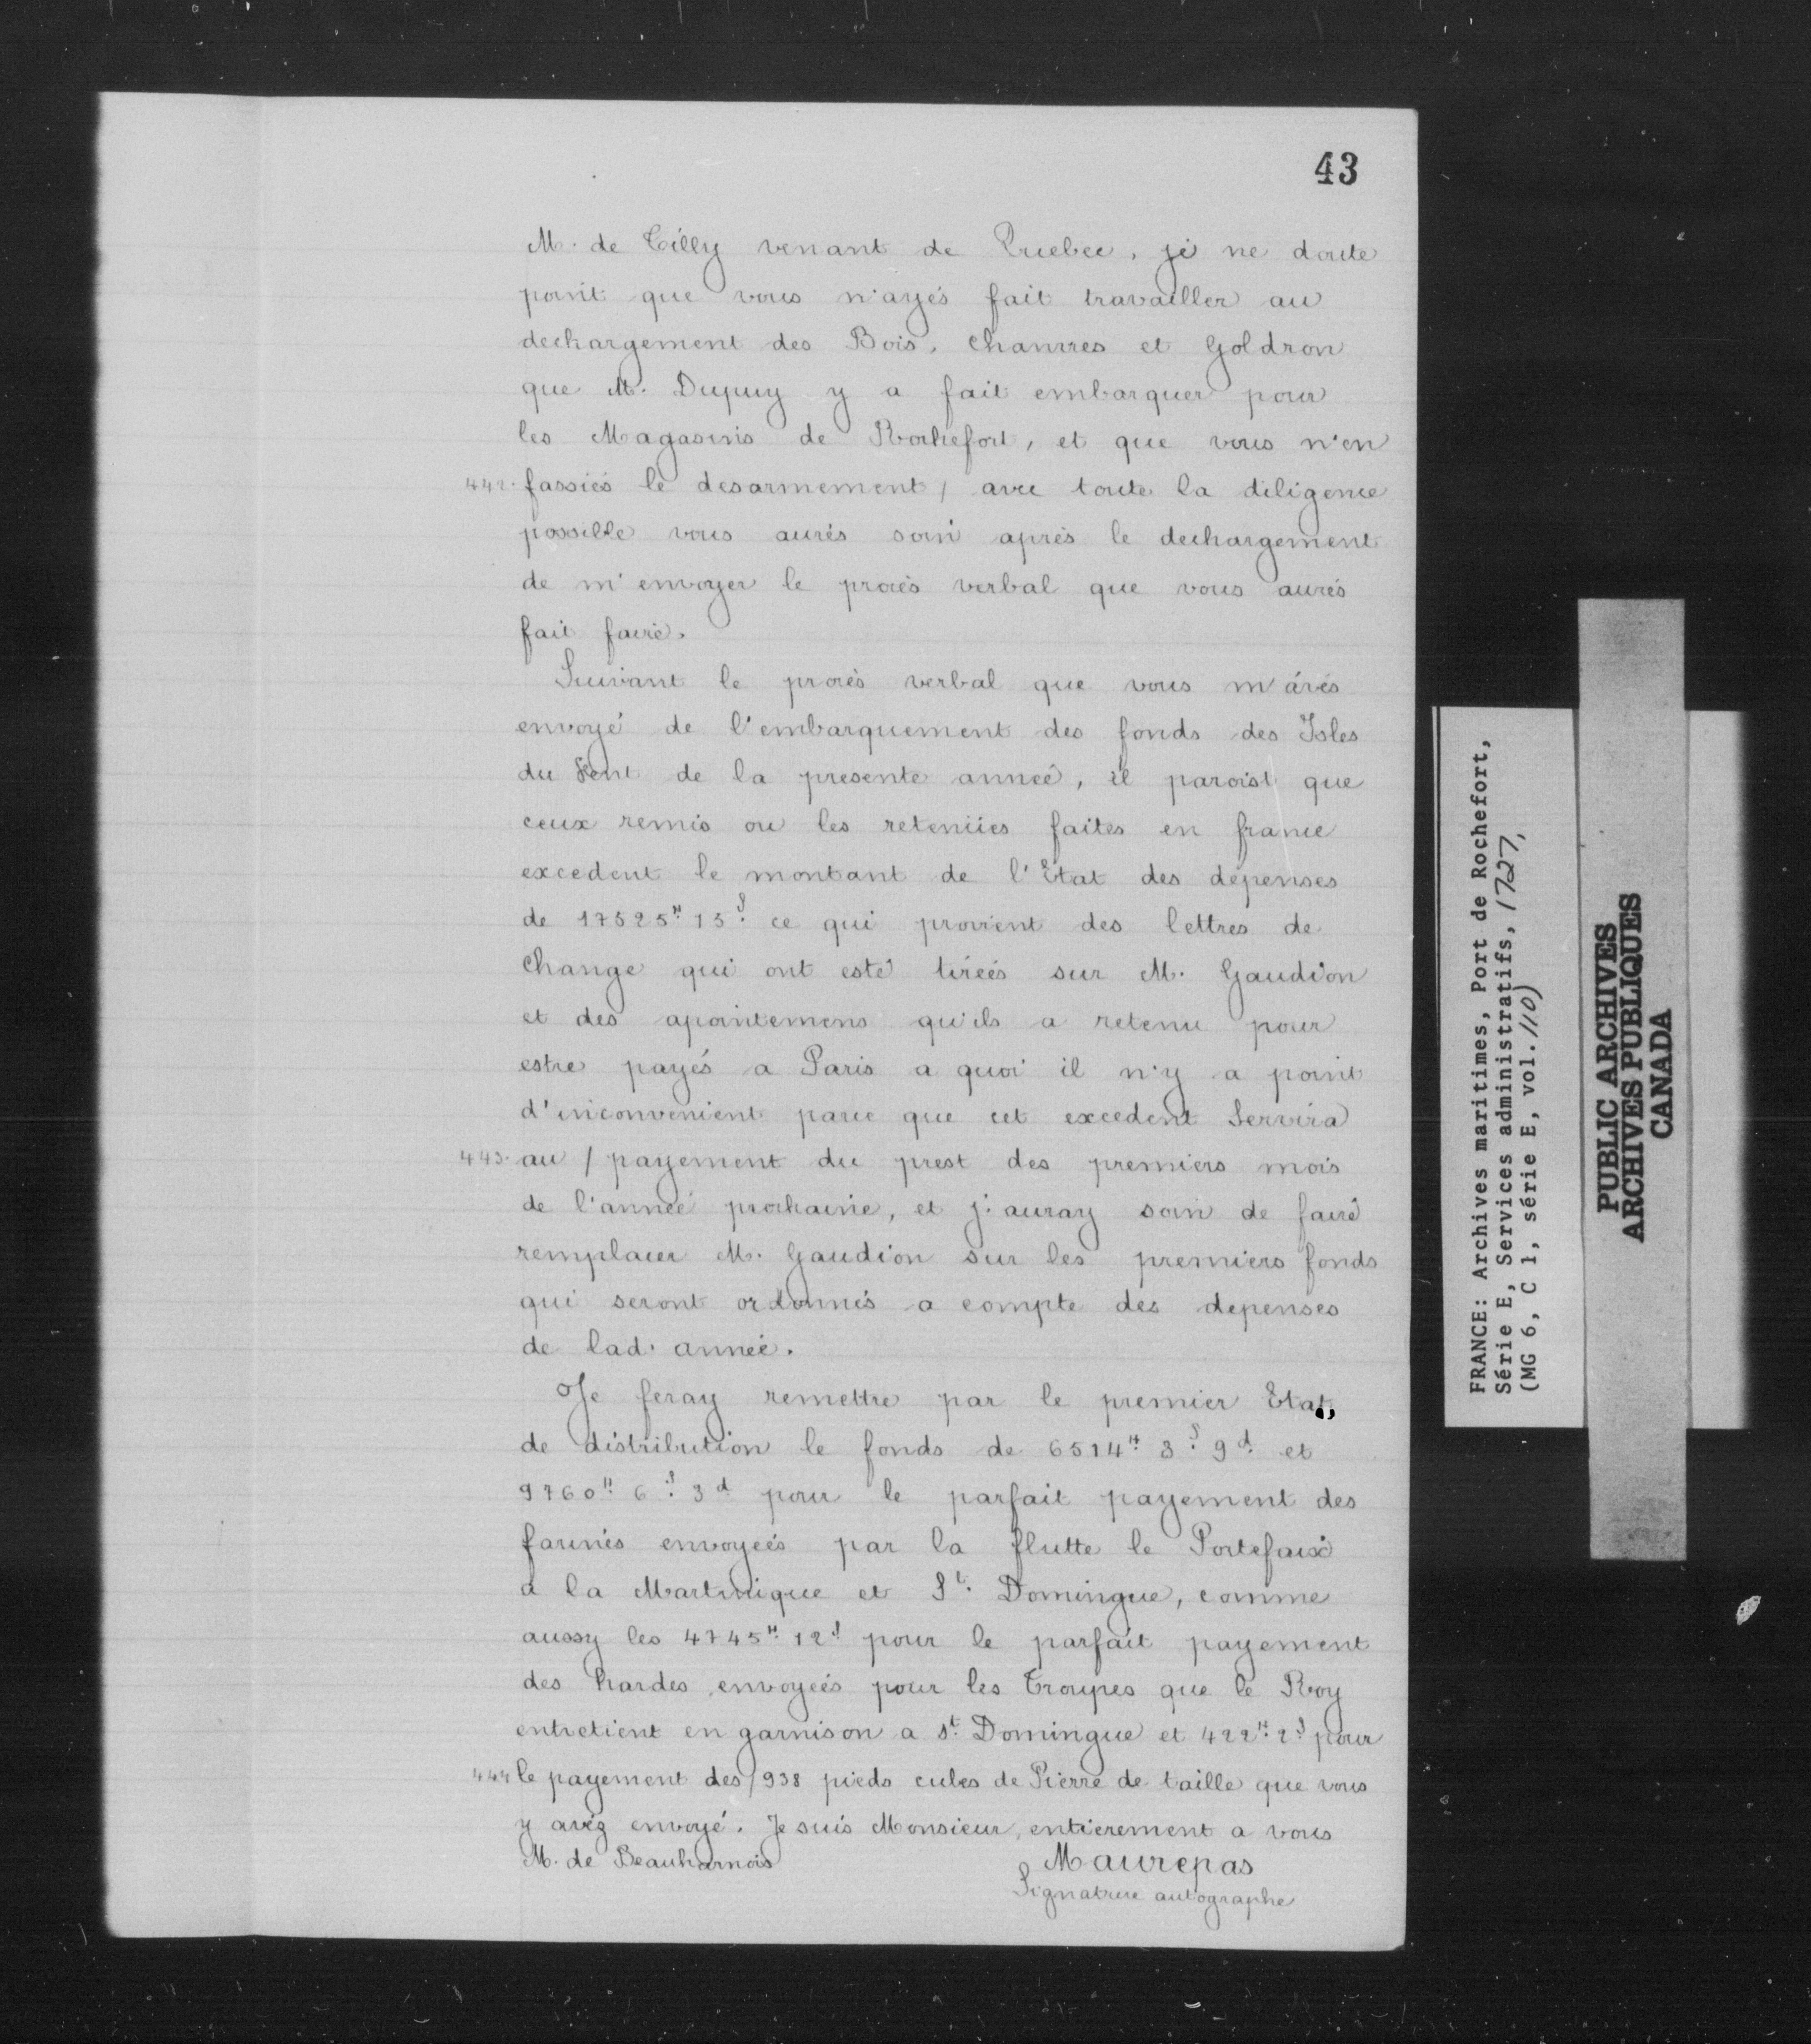 43
M. de Tilly venant de Quebec, je ne doute
point que vous n'ayés fait travailler au
dechargement des Bois, chanvres et Goldron
que M. Dupuy y a fait embarquer pour
les Magasins de Rochefort, et que vous n'en
442. fassiés le desarmement / avec toute la diligence
possible vous aurés soin après le dechargement
de m'envoyer le procés verbal que vous aurés
fait faire.
Suivant le procés verbal que vous m'avés
envoyé de l'embarquement des fonds des Isles
du Vent de la presente année, il paroist que
ceux remis ou les retenües faites en france
excedent le montant de l'Etat des dépenses
de 17525ᴴ 15ˢ ce qui provient des lettres de
change qui ont esté tirées sur M. Gaudion
et des apointemens qu'ils a retenu pour
estre payés a Paris a quoi il n'y a point
d'inconvenient parce que cet excedent servira
443. au / payement du prest des premiers mois
de l'année prochaine, et j'auray soin de faire
remplacer M. Gaudion sur les premiers fonds
qui seront ordonnés a compte des depenses
de lad. année.
Je feray remettre par le premier Etat
de distribution le fonds de 6514ᴴ 3ˢ 9ᵈ et
9760ᴴ 6ˢ 3ᵈ pour le parfait payement des
farines envoyées par la flutte le Portefaix
a la Martinique et Sᵗ. Domingue, comme
aussy les 4745ᴴ 12ˢ pour le parfait payement
des hardes envoyées pour les Troupes que le Roy
entretient en garnison a Sᵗ. Domingue et 422ᴴ 2ˢ pour
444 le payement des / 938 pieds cubes de Pierre de taille que vous
y avéz envoyé. Je suis Monsieur, entierement a vous
M. de Beauharnois Maurepas
Signature autographe
FRANCE: Archives maritimes, Port de Rochefort,
Série E, Services administratifs, 1727,
(MG 6, C 1, série E, vol. 110)
PUBLIC ARCHIVES
ARCHIVES PUBLIQUES
CANADA